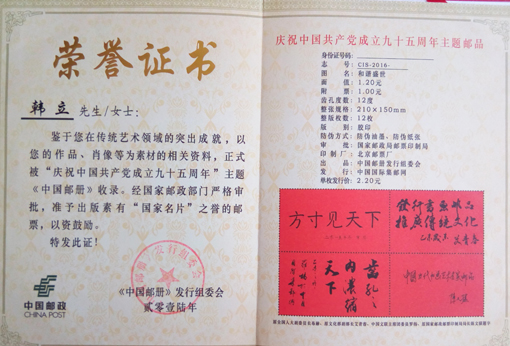 荣誉证书
韩立 先生/女士:
鉴于您在传统艺术领域的突出成就,以
您的作品、肖像等为素材的相关资料,正式
被“庆祝中国共产党成立九十五周年”主题
《中国邮册》收录。经国家邮政部门严格审
批,准予出版素有“国家名片”之誉的邮
票,以资鼓励。
特发此证!
中国邮政
CHINA POST
《中国邮册》发行组委会
贰零壹陆年
庆祝中国共产党成立九十五周年主题邮品
身份证号码:
志号: CIS-2016-
图名: 和谐盛世
面值: 1.20元
附票: 1.00元
齿孔度数: 12度
整张规格: 210×150mm
整版枚数: 12枚
版别: 胶印
防伪方式: 防伪油墨、防伪纸张
审批: 国家邮政局邮票印制局
印制厂: 北京邮票厂
发行: 中国邮册发行组委会
发行: 中国国际集邮网
单枚发行价: 2.20元
方寸见天下
齿孔之
内浓缩
天下